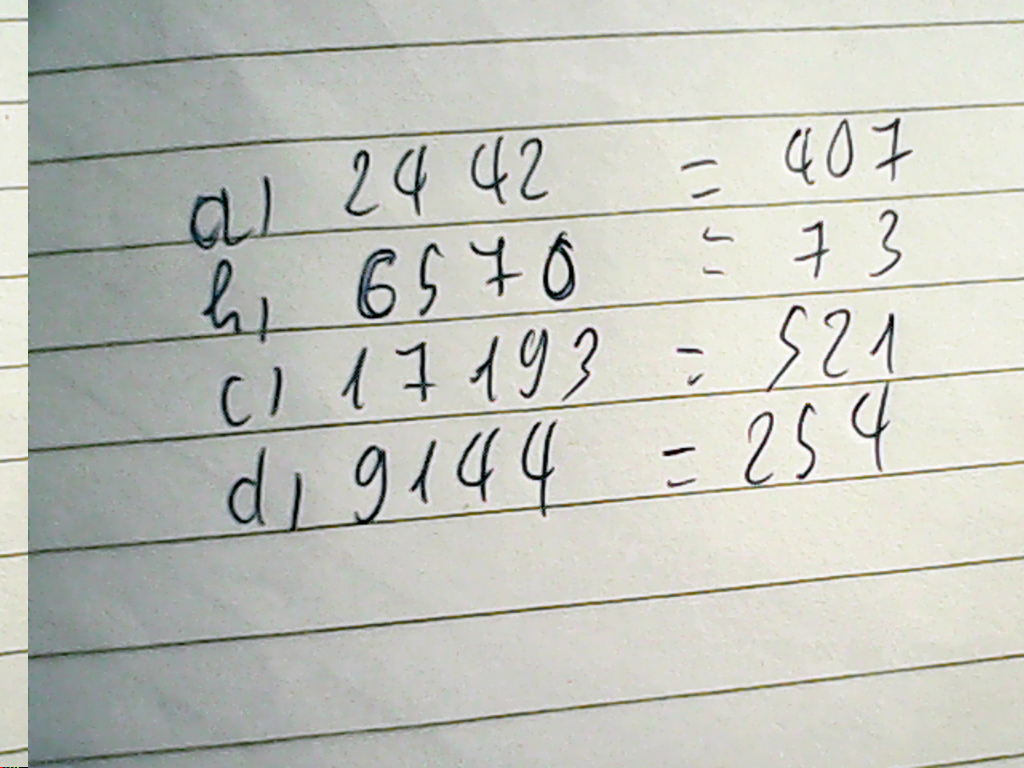 a) 2442 = 407
b) 6570 = 73
c) 17193 = 521
d) 9144 = 254